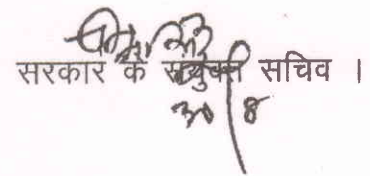 सरकार के संयुक्त सचिव ।
30/8